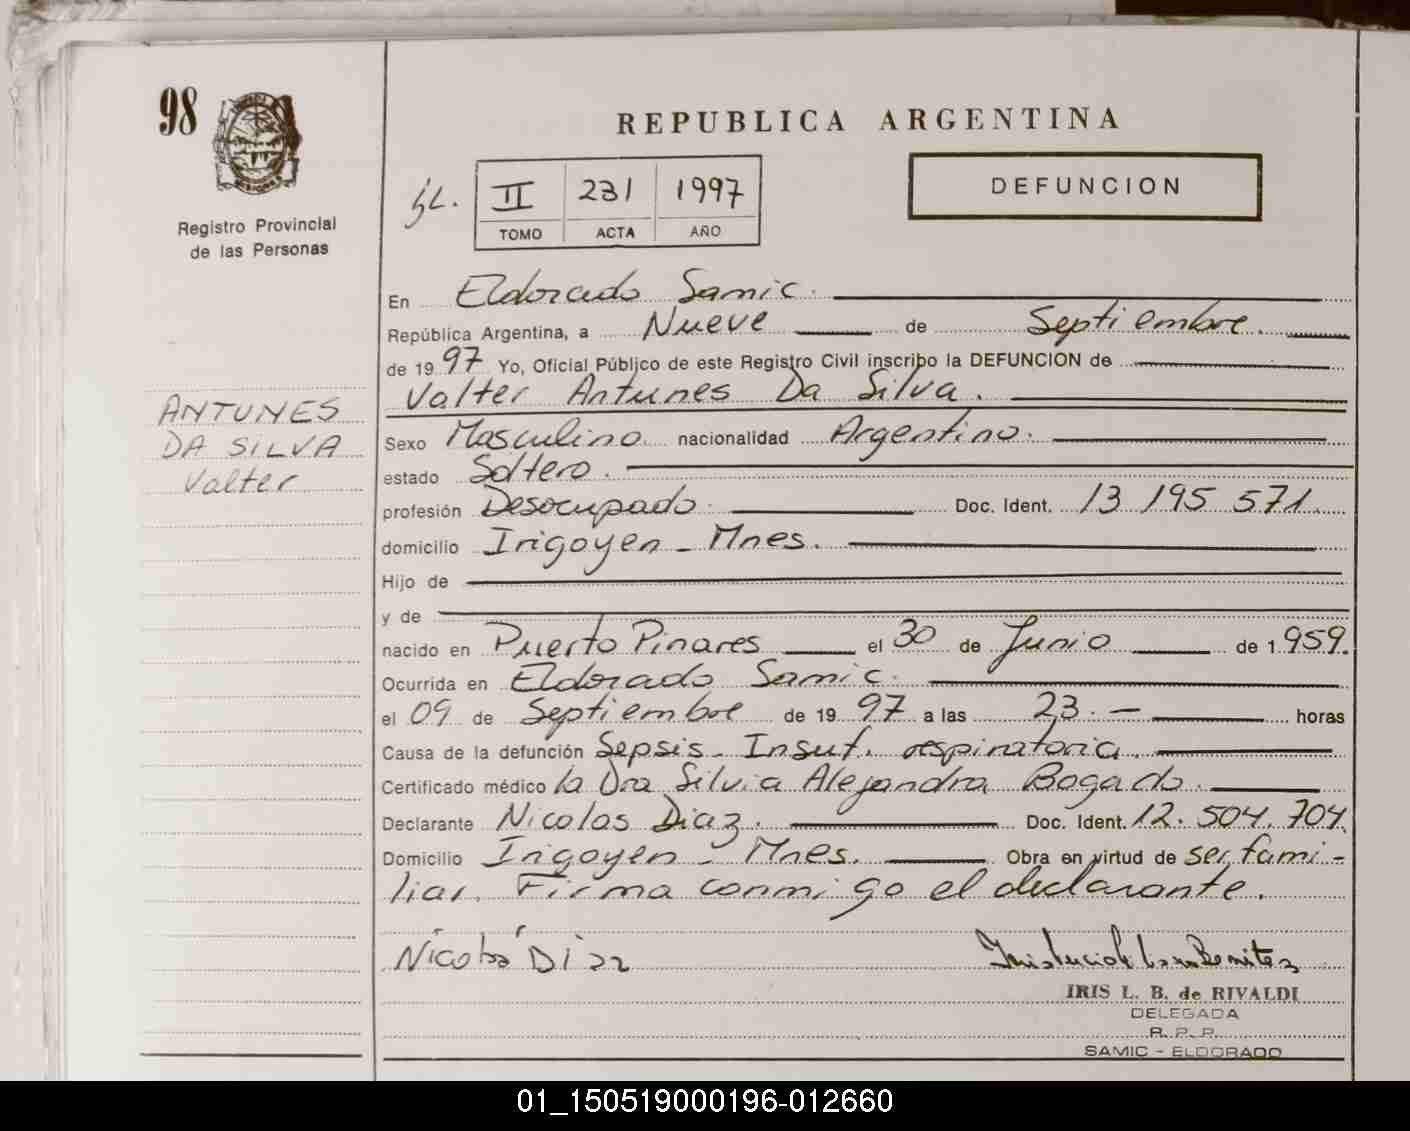 98
REPUBLICA ARGENTINA
II 231 1997
TOMO ACTA AÑO
DEFUNCION
Registro Provincial
de las Personas
ANTUNES
DA SILVA
Valter
En Eldorado Samic.
República Argentina, a Nueve de Septiembre.
de 1997 Yo, Oficial Público de este Registro Civil inscribo la DEFUNCION de
Valter Antunes Da Silva.
Sexo Masculino nacionalidad Argentino.
estado Soltero.
profesión Desocupado. Doc. Ident. 13 195 571.
domicilio Irigoyen - Mnes.
Hijo de
y de
nacido en Puerto Pinares el 30 de Junio de 1959.
Ocurrida en Eldorado Samic.
el 09 de Septiembre de 1997 a las 23.- horas
Causa de la defunción Sepsis - Insuf. respiratoria.
Certificado médico la Dra Silvia Alejandra Bogado.
Declarante Nicolas Diaz. Doc. Ident. 12.504.704.
Domicilio Irigoyen - Mnes. Obra en virtud de ser fami-
liar. Firma conmigo el declarante.
IRIS L. B. de RIVALDI
DELEGADA
R. P. P.
SAMIC - ELDORADO
01_150519000196-012660